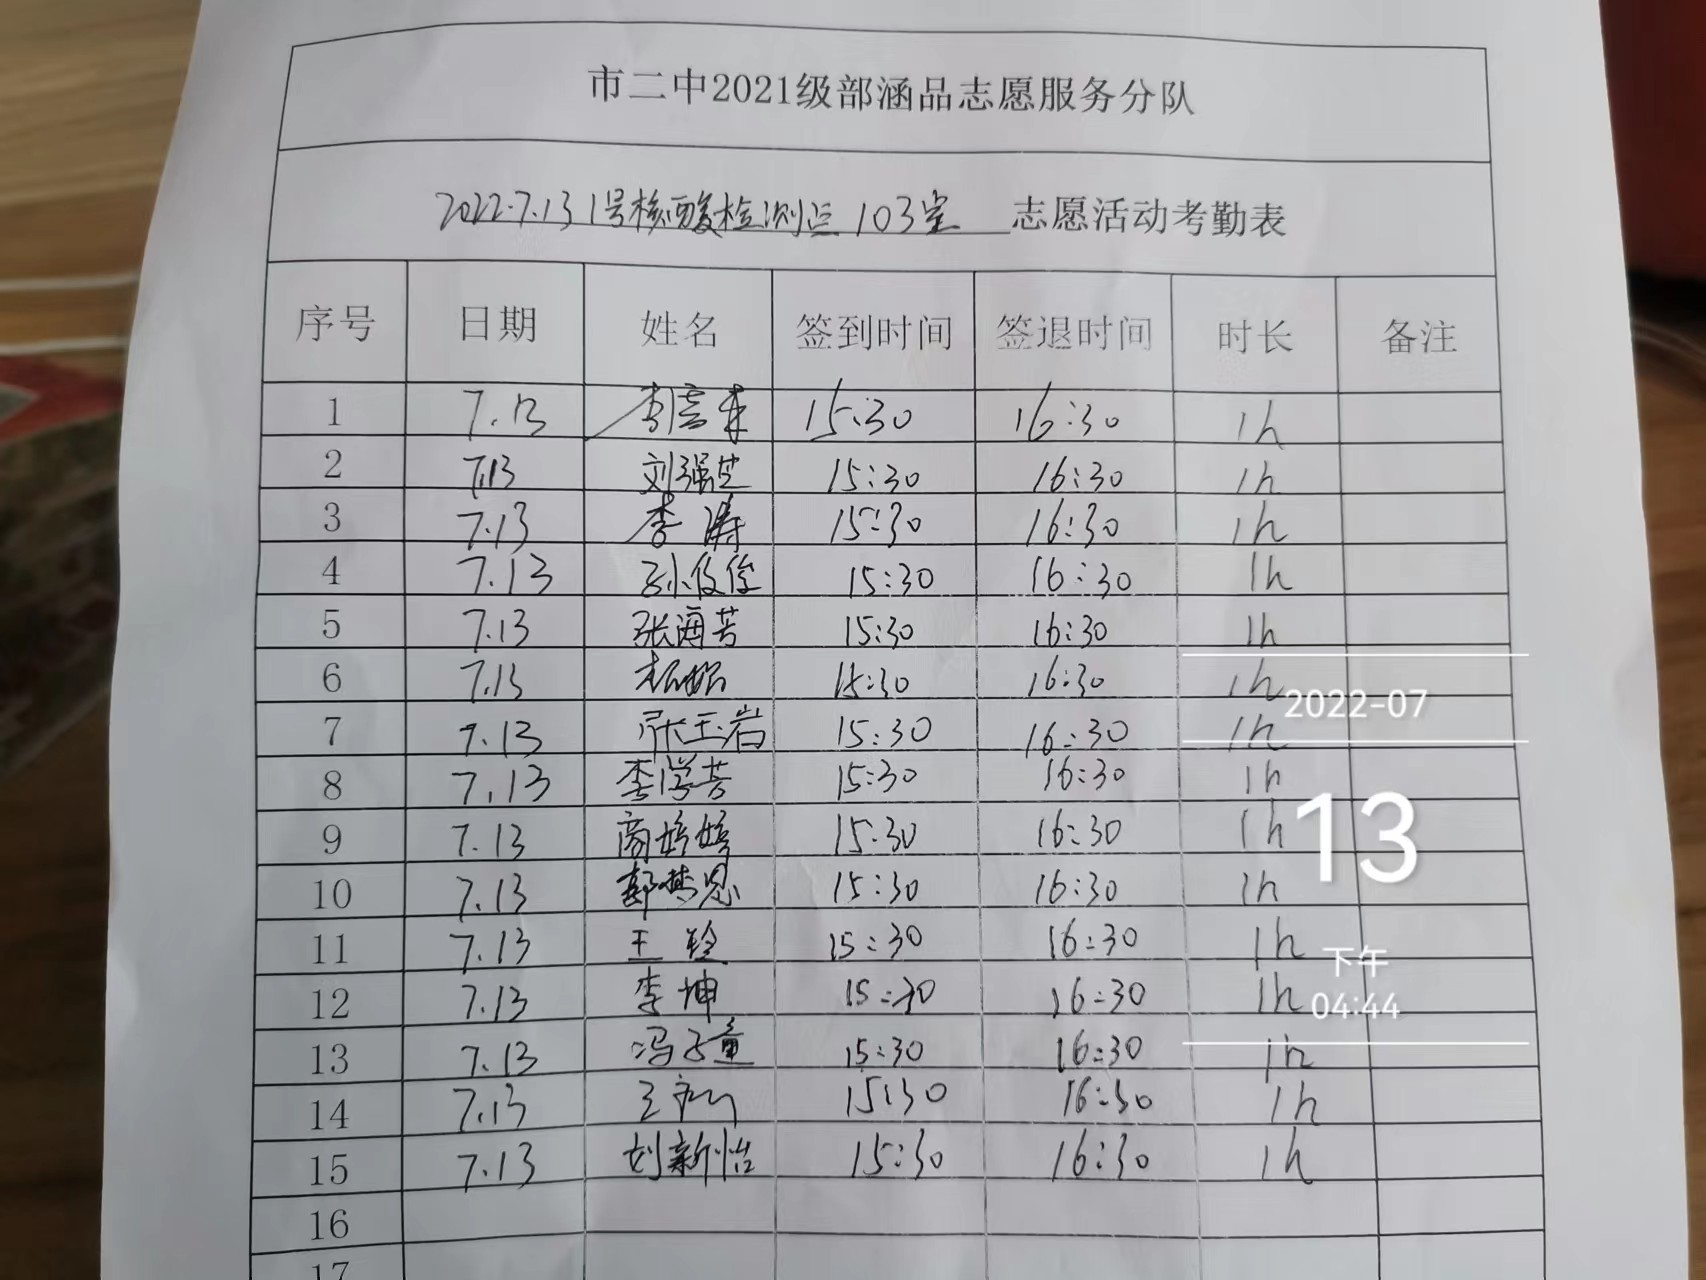 市二中2021级部涵品志愿服务分队
2022.7.13 1号核酸检测点 103室 志愿活动考勤表
序号 日期 姓名 签到时间 签退时间 时长 备注
1 7.13 15:30 16:30 1h
2 7.13 刘强芝 15:30 16:30 1h
3 7.13 李涛 15:30 16:30 1h
4 7.13 孙俊俊 15:30 16:30 1h
5 7.13 张海芳 15:30 16:30 1h
6 7.13 15:30 16:30 1h
7 7.13 张玉岩 15:30 16:30 1h
8 7.13 李学芳 15:30 16:30 1h
9 7.13 商婷婷 15:30 16:30 1h
10 7.13 郭梦恩 15:30 16:30 1h
11 7.13 王玲 15:30 16:30 1h
12 7.13 李坤 15:30 16:30 1h
13 7.13 冯子童 15:30 16:30 1h
14 7.13 王 15:30 16:30 1h
15 7.13 刘新怡 15:30 16:30 1h
16
17
2022-07
13
下午
04:44